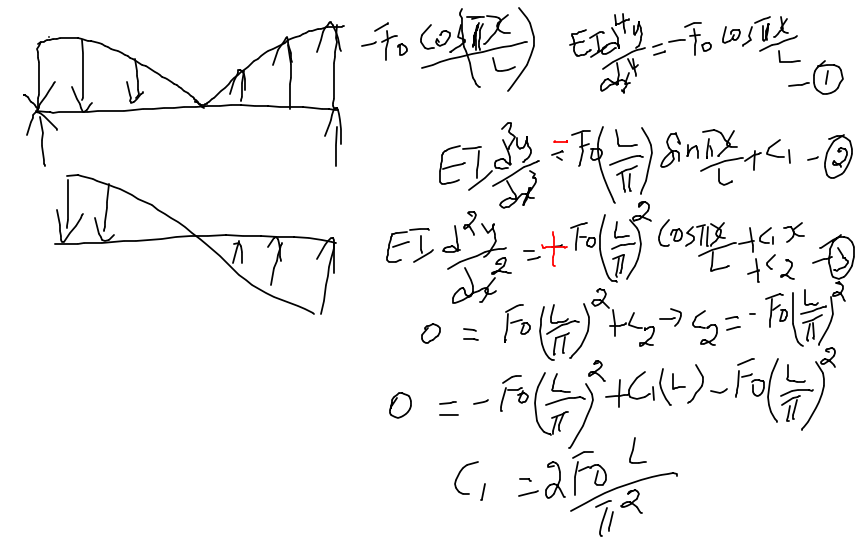 -F₀ cos(πx/L) EI d⁴y/dx⁴ = -F₀ cos πx/L - ①
EI d³y/dx³ = -F₀(L/π) sin πx/L + C₁ - ②
EI d²y/dx² = +F₀(L/π)² cos πx/L + C₁x + C₂ - ③
0 = F₀(L/π)² + C₂ → C₂ = -F₀(L/π)²
0 = -F₀(L/π)² + C₁(L) - F₀(L/π)²
C₁ = 2F₀L/π²